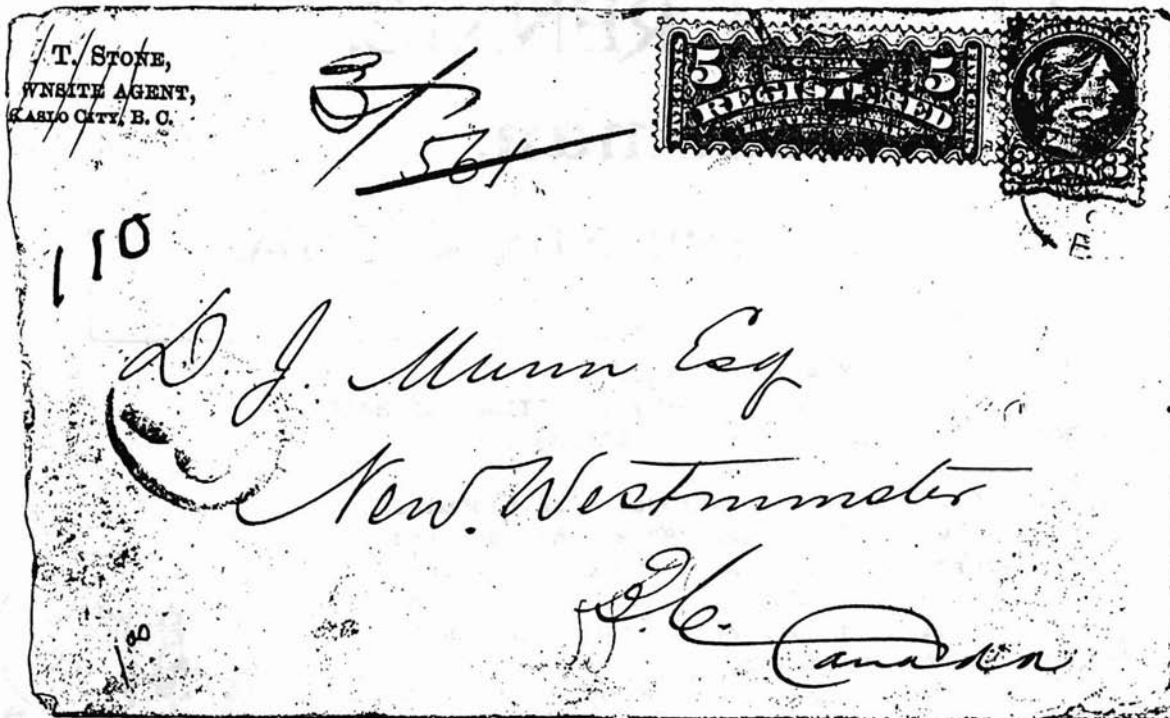 T. STONE,
WNSITE AGENT,
KASLO CITY, B. C.
561
5 CANADA 5
REGISTERED
3 CENTS 3
110
D. J. Munn Esq
New. Westminster
B.C.
Canada